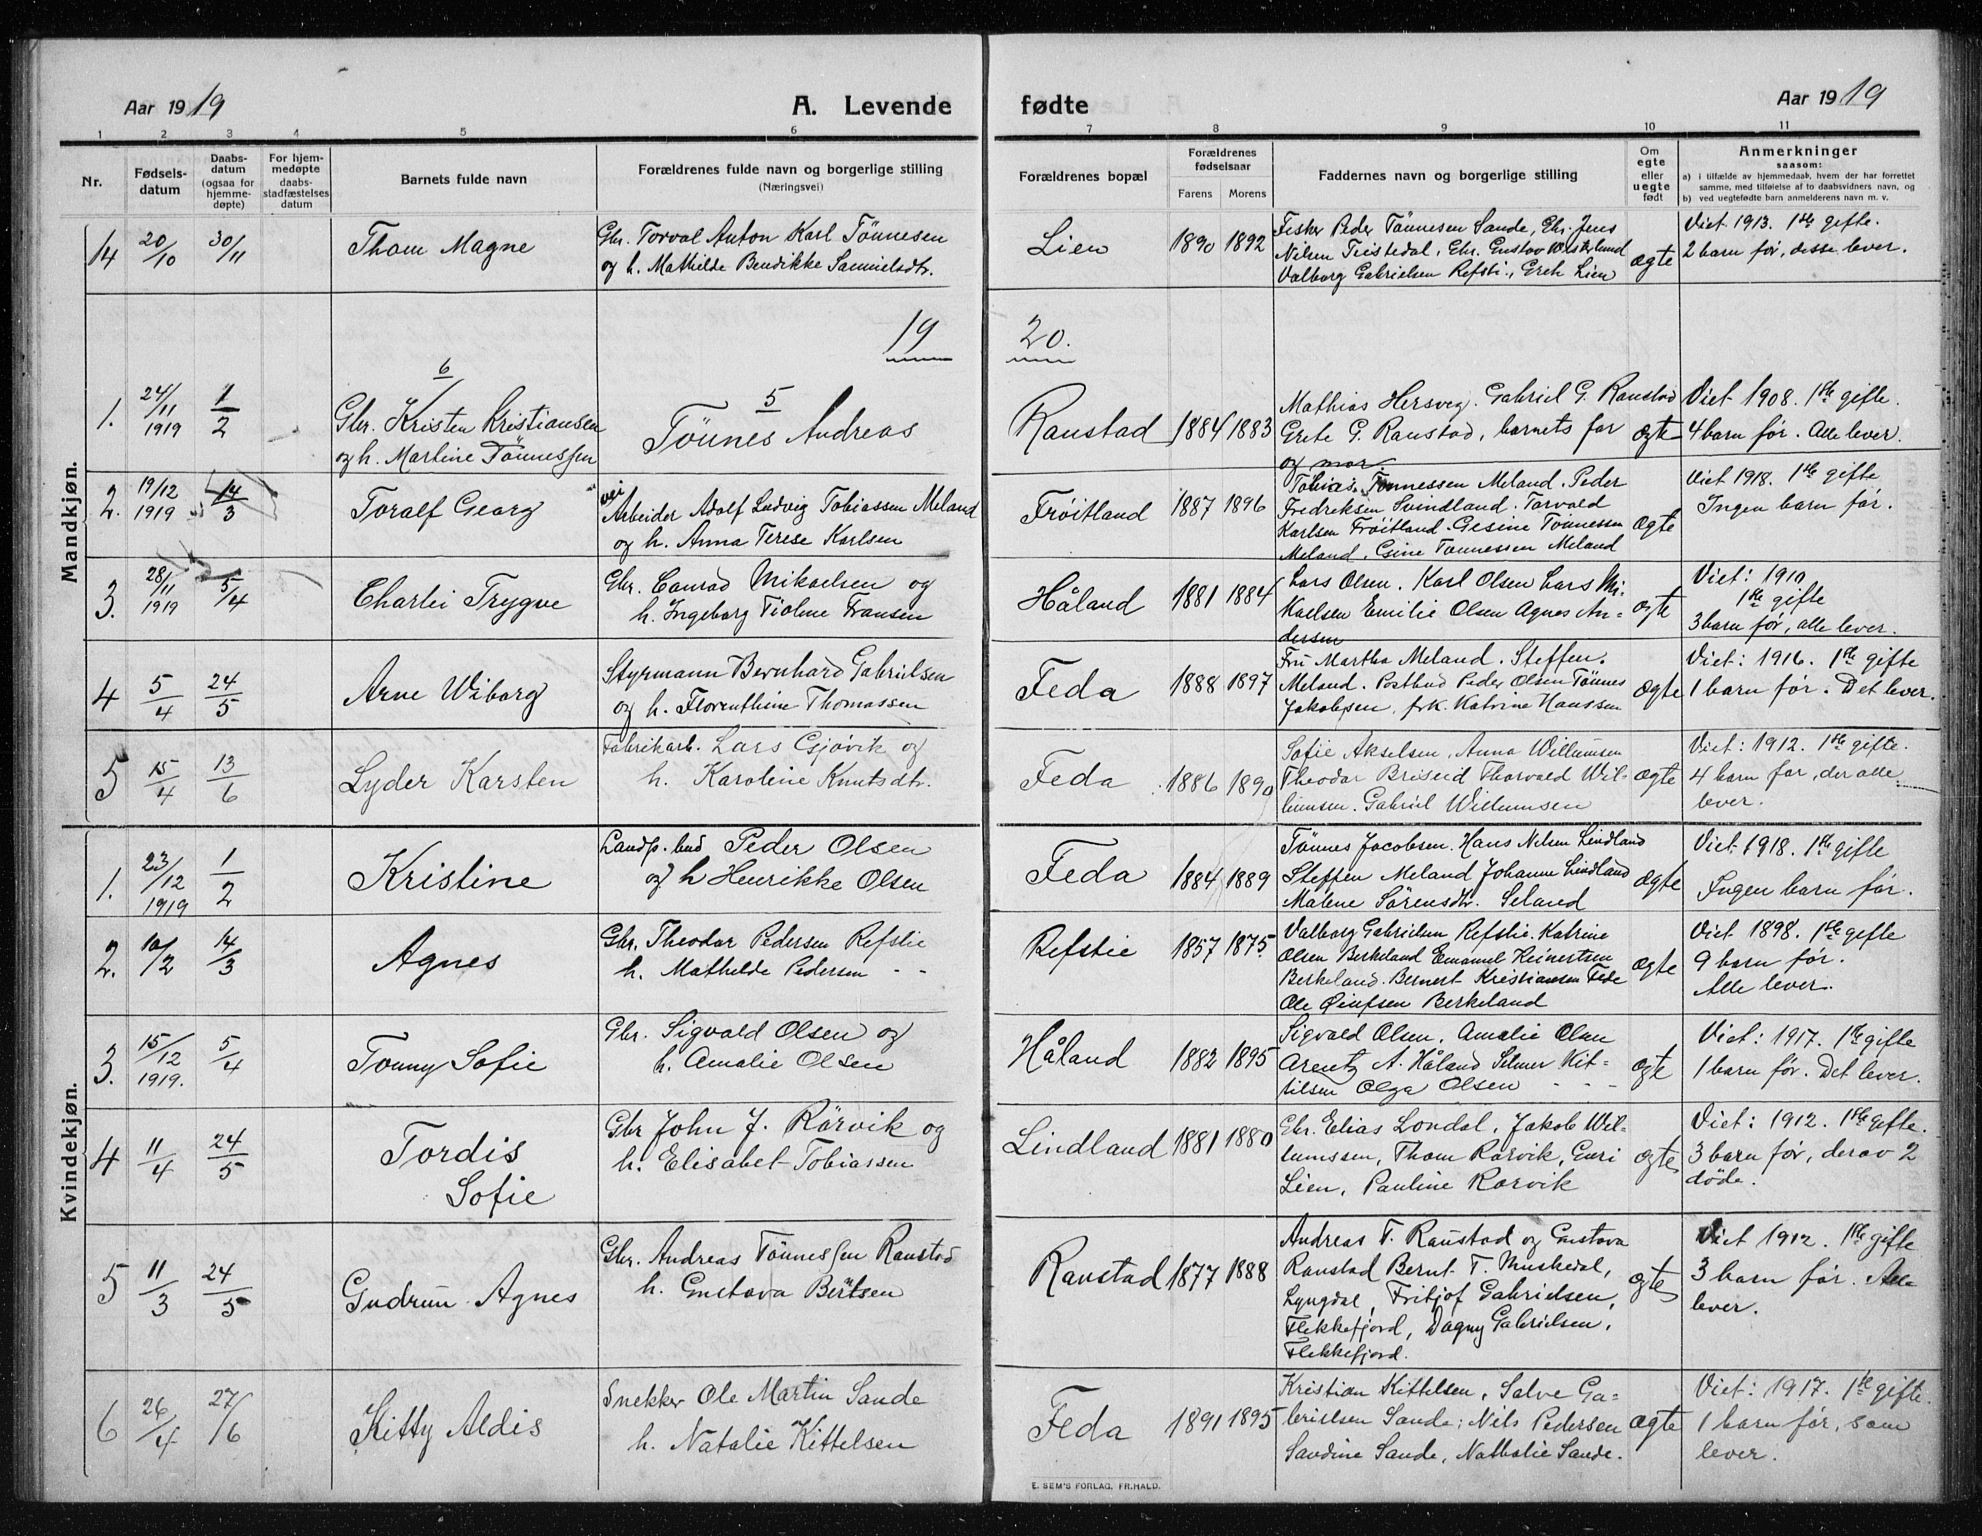 Aar 1919
A. Levende
fødte
Aar 1919
1 2 3 4 5 6 7 8 9 10 11
Nr.
Fødsels-
datum
Daabs-
datum
(ogsaa for
hjemme-
døpte)
For hjem-
medøpte
daabs-
stadfæstelses
datum
Barnets fulde navn
Forældrenes fulde navn og borgerlige stilling
(Næringsvei)
Forældrenes bopæl
Forældrenes
fødselsaar
Farens Morens
Faddernes navn og borgerlige stilling
Om
egte
eller
uegte
født
Anmerkninger
saasom:
a) i tilfælde av hjemmedaab, hvem der har forrettet
samme, med tilføielse af to daabsvidners navn, og
b) ved uegtefødte barn anmelderens navn m. v.
Mandkjøn.
14 20/10 30/11 Thom Magne
Gbr. Torval Anton Karl Tönnesen
og h. Mathilde Bendikke Samuelsdtr.
Lien 1890 1892
Fisker Peder Tönnesen Sande, Gbr. Jens
Nilsen Tistedal, Gbr. Gustav Westerlund
Valborg Gabrielsen Refsti, Greth Lien
ægte
Viet 1913. 1ste gifte.
2 barn før, disse lever.
19
20.
1. 24/11 1919 1/2
6
Gbr. Kristen Kristiansen
og h. Martine Tönnessen
5
Tönnes Andreas
Raustad 1884 1883
Mathias Hersveg. Gabriel G. Raustad
Grete G. Raustad, barnets far
og mor.
ægte
Viet 1908. 1ste gifte.
4 barn før. Alle lever.
2. 19/12 1919 14/3 Toralf Georg
vei
Arbeider Adolf Ludvig Tobiassen Meland
og h. Anna Terese Karlsen
Frøitland 1887 1896
Tobias Tønnessen Meland. Peder
Fredriksen Svindland. Torvald
Karlsen Frøitland. Gesine Tønnessen
Meland, Gsine Tønnessen Meland
ægte
Viet 1918. 1ste gifte
Ingen barn før.
3. 28/11 1919 5/4 Charlei Trygve
Gbr. Conrad Mikaelsen og
h. Ingeborg Tioline Fransen
Håland 1881 1884
Lars Olsen. Karl Olsen Lars Mi-
kaelsen Emilie Olsen Agnes An-
dersen
ægte
Viet: 1910
1ste gifte
3 barn før, alle lever.
4 5/4 24/5 Arne Wiborg
Styrmann Bernhard Gabrielsen
og h. Florenthine Thomassen
Feda 1888 1897
Fru Martha Meland. Steffen.
Meland. Postbud Peder Olsen Tönnes
Jakobsen, frk. Katrine Hanssen
ægte
Viet: 1916. 1ste gifte
1 barn før. Det lever.
5 15/4 13/6 Lyder Karsten
Fabrikarb. Lars Gjøvik og
h. Karoline Knutsdtr.
Feda 1886 1890
Sofie Akselsen, Anna Willumsen
Theodor Briseid Thorvald Wil-
lumsen. Gabriel Willumsen
ægte
Viet: 1912. 1ste gifte.
4 barn før, der alle
lever.
Kvindekjøn.
1. 23/12 1919 1/2 Kristine
Landp. bud Peder Olsen
og h Henrikke Olsen
Feda 1884 1889
Tönnes Jacobsen. Hans Nilsen Lindland
Steffen Meland Johanne Lindland
Malene Sörensdtr. Seland
ægte
Viet 1918. 1ste gifte
Ingen barn før.
2. 10/2 14/3 Agnes
Gbr. Theodor Pedersen Refstie
h. Mathelde Pedersen - -
Refstie 1857 1875
Valborg Gabrielsen Refstie. Katrine
Olsen Berkeland Emanuel Reinertsen
Berkeland. Bernert Kristiansen Fede
Ole Øiufsen Berkeland
ægte
Viet 1898. 1ste gifte
9 barn før.
Alle lever.
3. 15/12 1919. 5/4 Tonny Sofie
Gbr. Sigvald Olsen og
h. Amalie Olsen
Håland 1882 1895
Sigvald Olsen, Amalie Olsen
Arentz A. Håland Selmer Kit-
tilsen Olga Olsen - - -
ægte
Viet: 1917. 1ste gifte
1 barn før. Det lever.
4 11/4 24/5 Tordis
Sofie
Gbr John J. Rörvik og
h. Elisabet Tobiassen
Lindland 1881 1880
Gbr. Elias Londal, Jakob Wil-
lumssen, Thom Rørvik, Guri
Lien, Pauline Rørvik
ægte
Viet: 1912. 1ste gifte.
3 barn før, derav 2
døde.
5 11/3 24/5 Gudrun Agnes
Gbr. Andreas Tönnessen Raustad
h. Gustava Bertsen
Raustad 1877 1888
Andreas T. Raustad og Gustava
Raustad Bernt T. Muskedal,
Lyngdal, Fritjof Gabrielsen,
Flekkefjord, Dagny Gabrielsen,
Flekkefjord.
ægte
Viet 1912. 1ste gifte
3 barn før. Alle
lever.
6 26/4 27/6 Kitty Aldis
Snekker Ole Martin Sande
h. Natalie Kittelsen
Feda 1891 1895
Kristian Kittelsen, Salve Ga-
brielsen Sande; Nils Pedersen
Sandine Sande, Nathalie Sande.
ægte
Viet: 1917. 1ste gifte.
1 barn før, som
lever.
E. SEM'S FORLAG, FR.HALD.